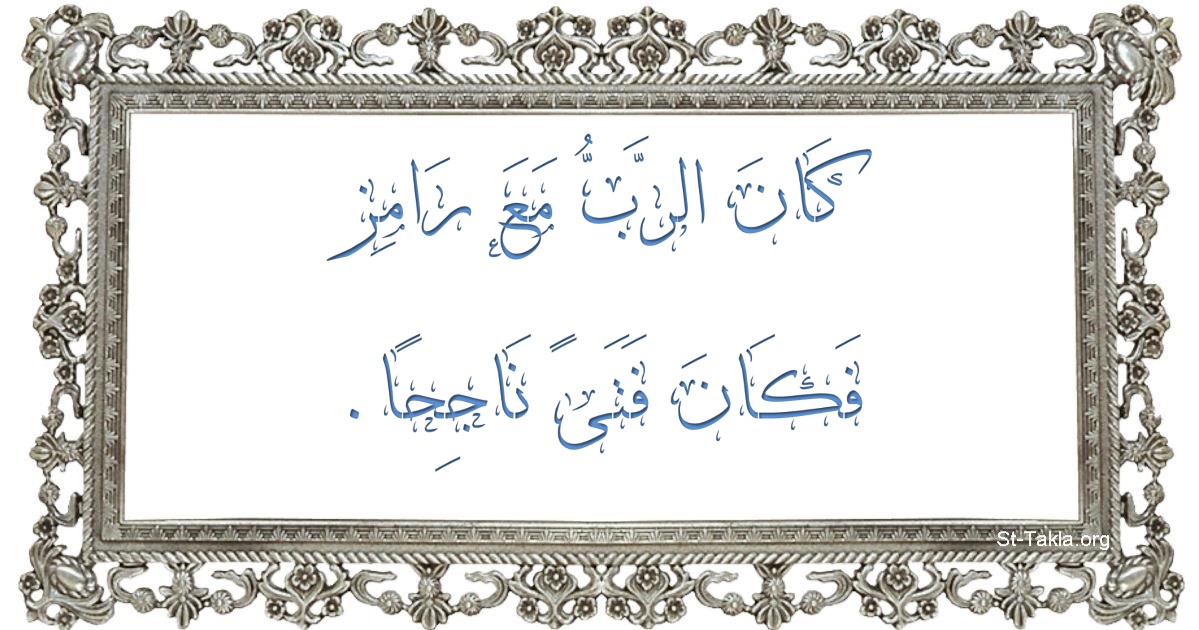 كَانَ الرَّبُّ مَعَ رَامِزِ
فَكَانَ فَتَىً نَاجِحًا .
St-Takla.org